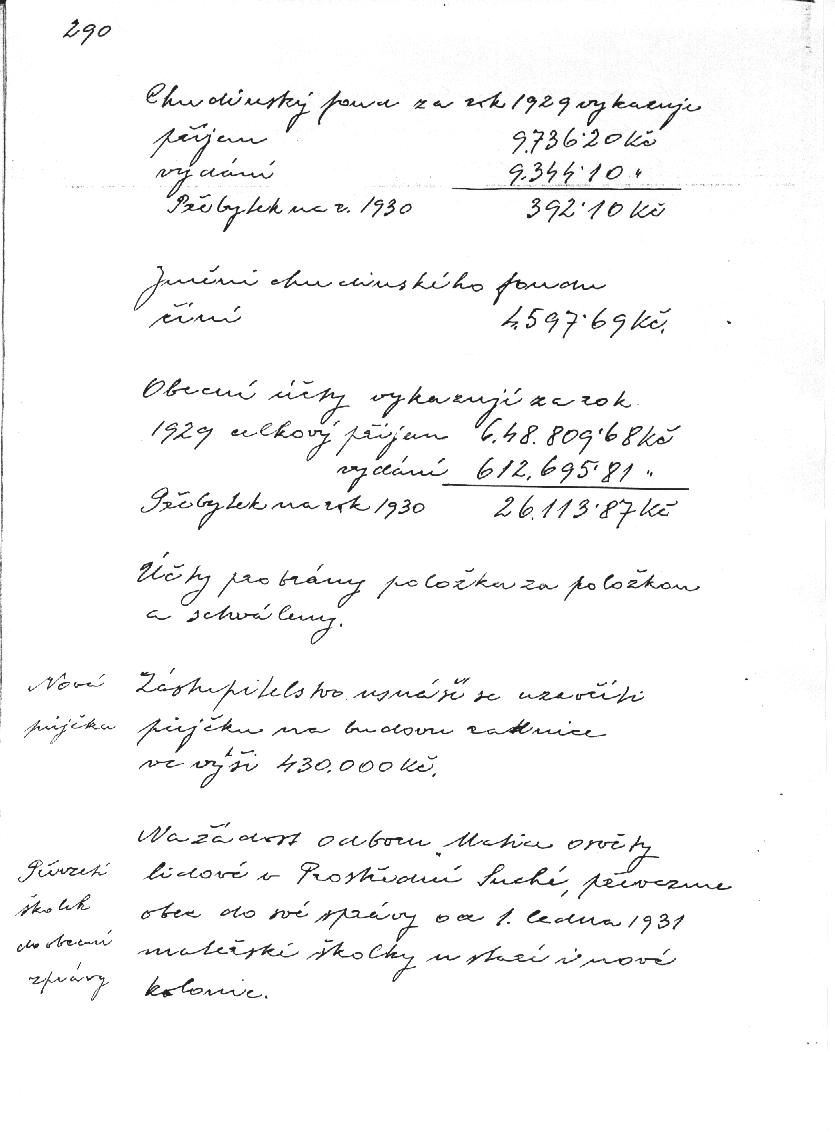 290
Chudinský fond za rok 1929 vykazuje
příjem 9.736·20 Kč
vydání 9.344·10 "
Přebytek na r. 1930 392·10 Kč
Jmění chudinského fondu
činí 4.597·69 Kč.
Obecní účty vykazují za rok
1929 celkový příjem 6.48.809·68 Kč
vydání 612.695·81 "
Přebytek na rok 1930 26.113·87 Kč
Účty probrány položka za položkou
a schváleny.
Nová
půjčka
Zastupitelstvo usnáší se uzavříti
půjčku na budovu radnice
ve výši 430.000 Kč.
Převzetí
školek
do obecní
správy
Na žádost odboru „Matice osvěty
lidové v Prostřední Suché, převezme
obec do své správy od 1. ledna 1931
mateřské školky u staré i nové
kolonie.